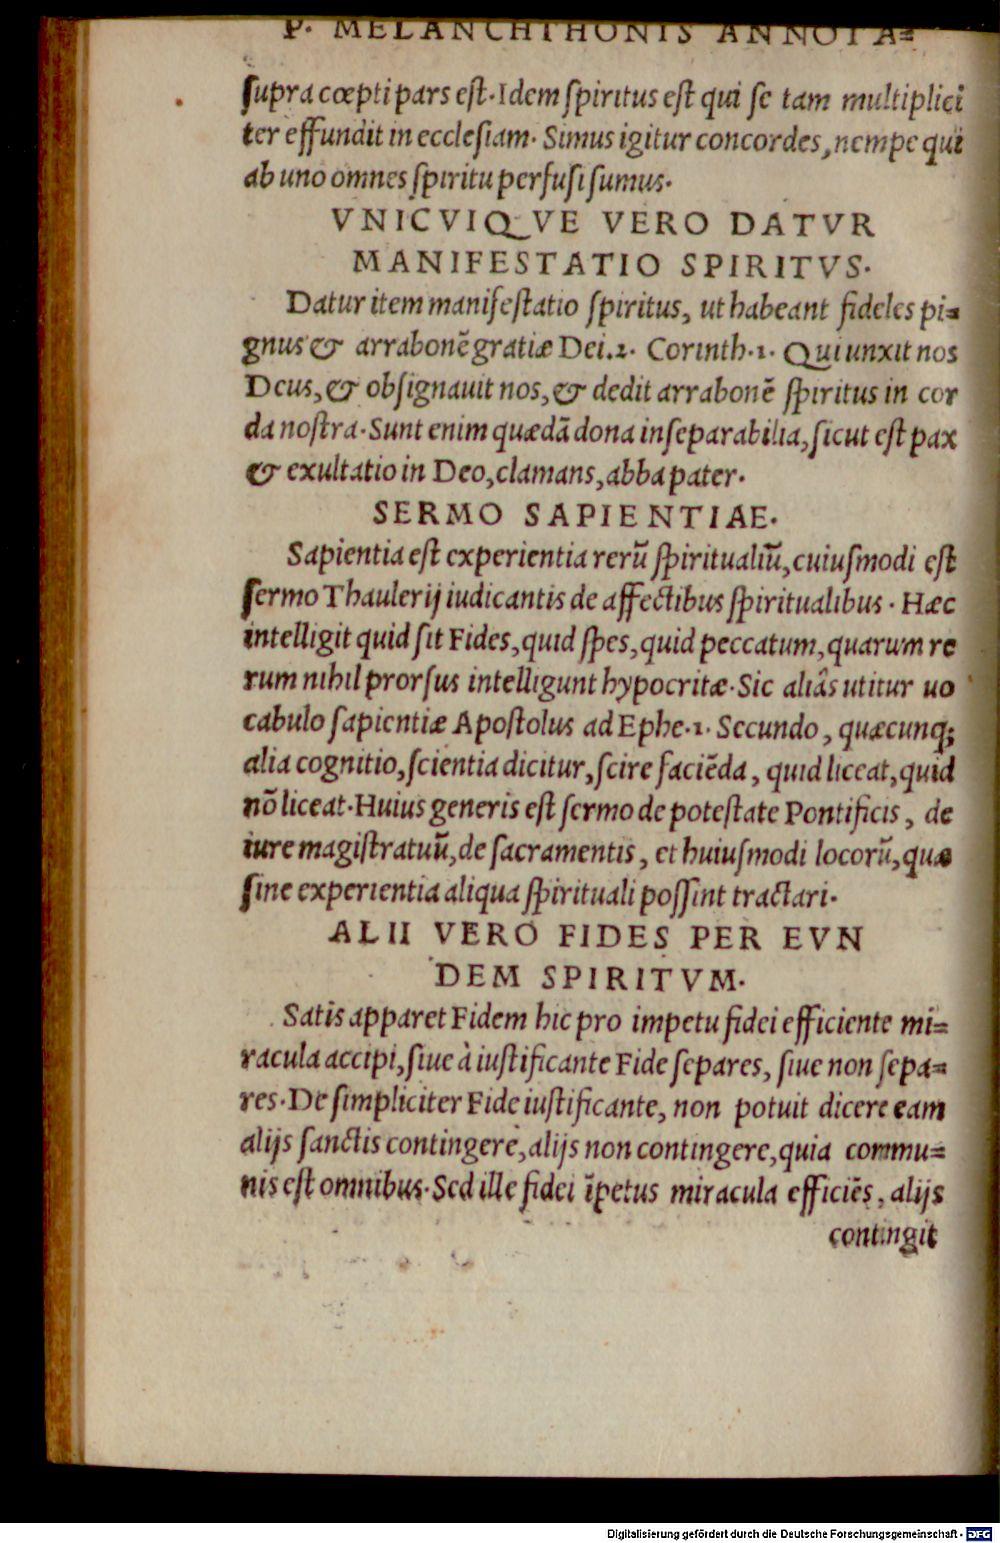 P. MELANCHTHONIS ANNOTA=
ſupra cœpti pars eſt. Idem ſpiritus eſt qui ſe tam multiplici
ter effundit in eccleſiam. Simus igitur concordes, nempe qui
ab uno omnes ſpiritu perfuſi ſumus.
VNICVIQVE VERO DATVR
MANIFESTATIO SPIRITVS.
Datur item manifeſtatio ſpiritus, ut habeant fideles pi=
gnus & arrabonẽ gratiæ Dei. 2. Corinth. 1. Qui unxit nos
Deus, & obſignauit nos, & dedit arrabonẽ ſpiritus in cor
da noſtra. Sunt enim quædã dona inſeparabilia, ſicut eſt pax
& exultatio in Deo, clamans, abba pater.
SERMO SAPIENTIAE.
Sapientia eſt experientia rerũ ſpiritualiũ, cuiuſmodi eſt
ſermo Thaulerij iudicantis de affectibus ſpiritualibus. Hæc
intelligit quid ſit Fides, quid ſpes, quid peccatum, quarum re
rum nihil prorſus intelligunt hypocritæ. Sic aliâs utitur uo
cabulo ſapientiæ Apoſtolus ad Ephe. 1. Secundo, quæcunq;
alia cognitio, ſcientia dicitur, ſcire faciẽda, quid liceat, quid
nõ liceat. Huius generis eſt ſermo de poteſtate Pontificis, de
iure magiſtratuũ, de ſacramentis, et huiuſmodi locorũ, quæ
ſine experientia aliqua ſpirituali poſſint tractari.
ALII VERO FIDES PER EVN
DEM SPIRITVM.
Satis apparet Fidem hic pro impetu fidei efficiente mi=
racula accipi, ſiue à iuſtificante Fide ſepares, ſiue non ſepa=
res. De ſimpliciter Fide iuſtificante, non potuit dicere eam
alijs ſanctis contingere, alijs non contingere, quia commu=
nis eſt omnibus. Sed ille fidei ĩpetus miracula efficiẽs, alijs
contingit
Digitalisierung gefördert durch die Deutsche Forschungsgemeinschaft - DFG